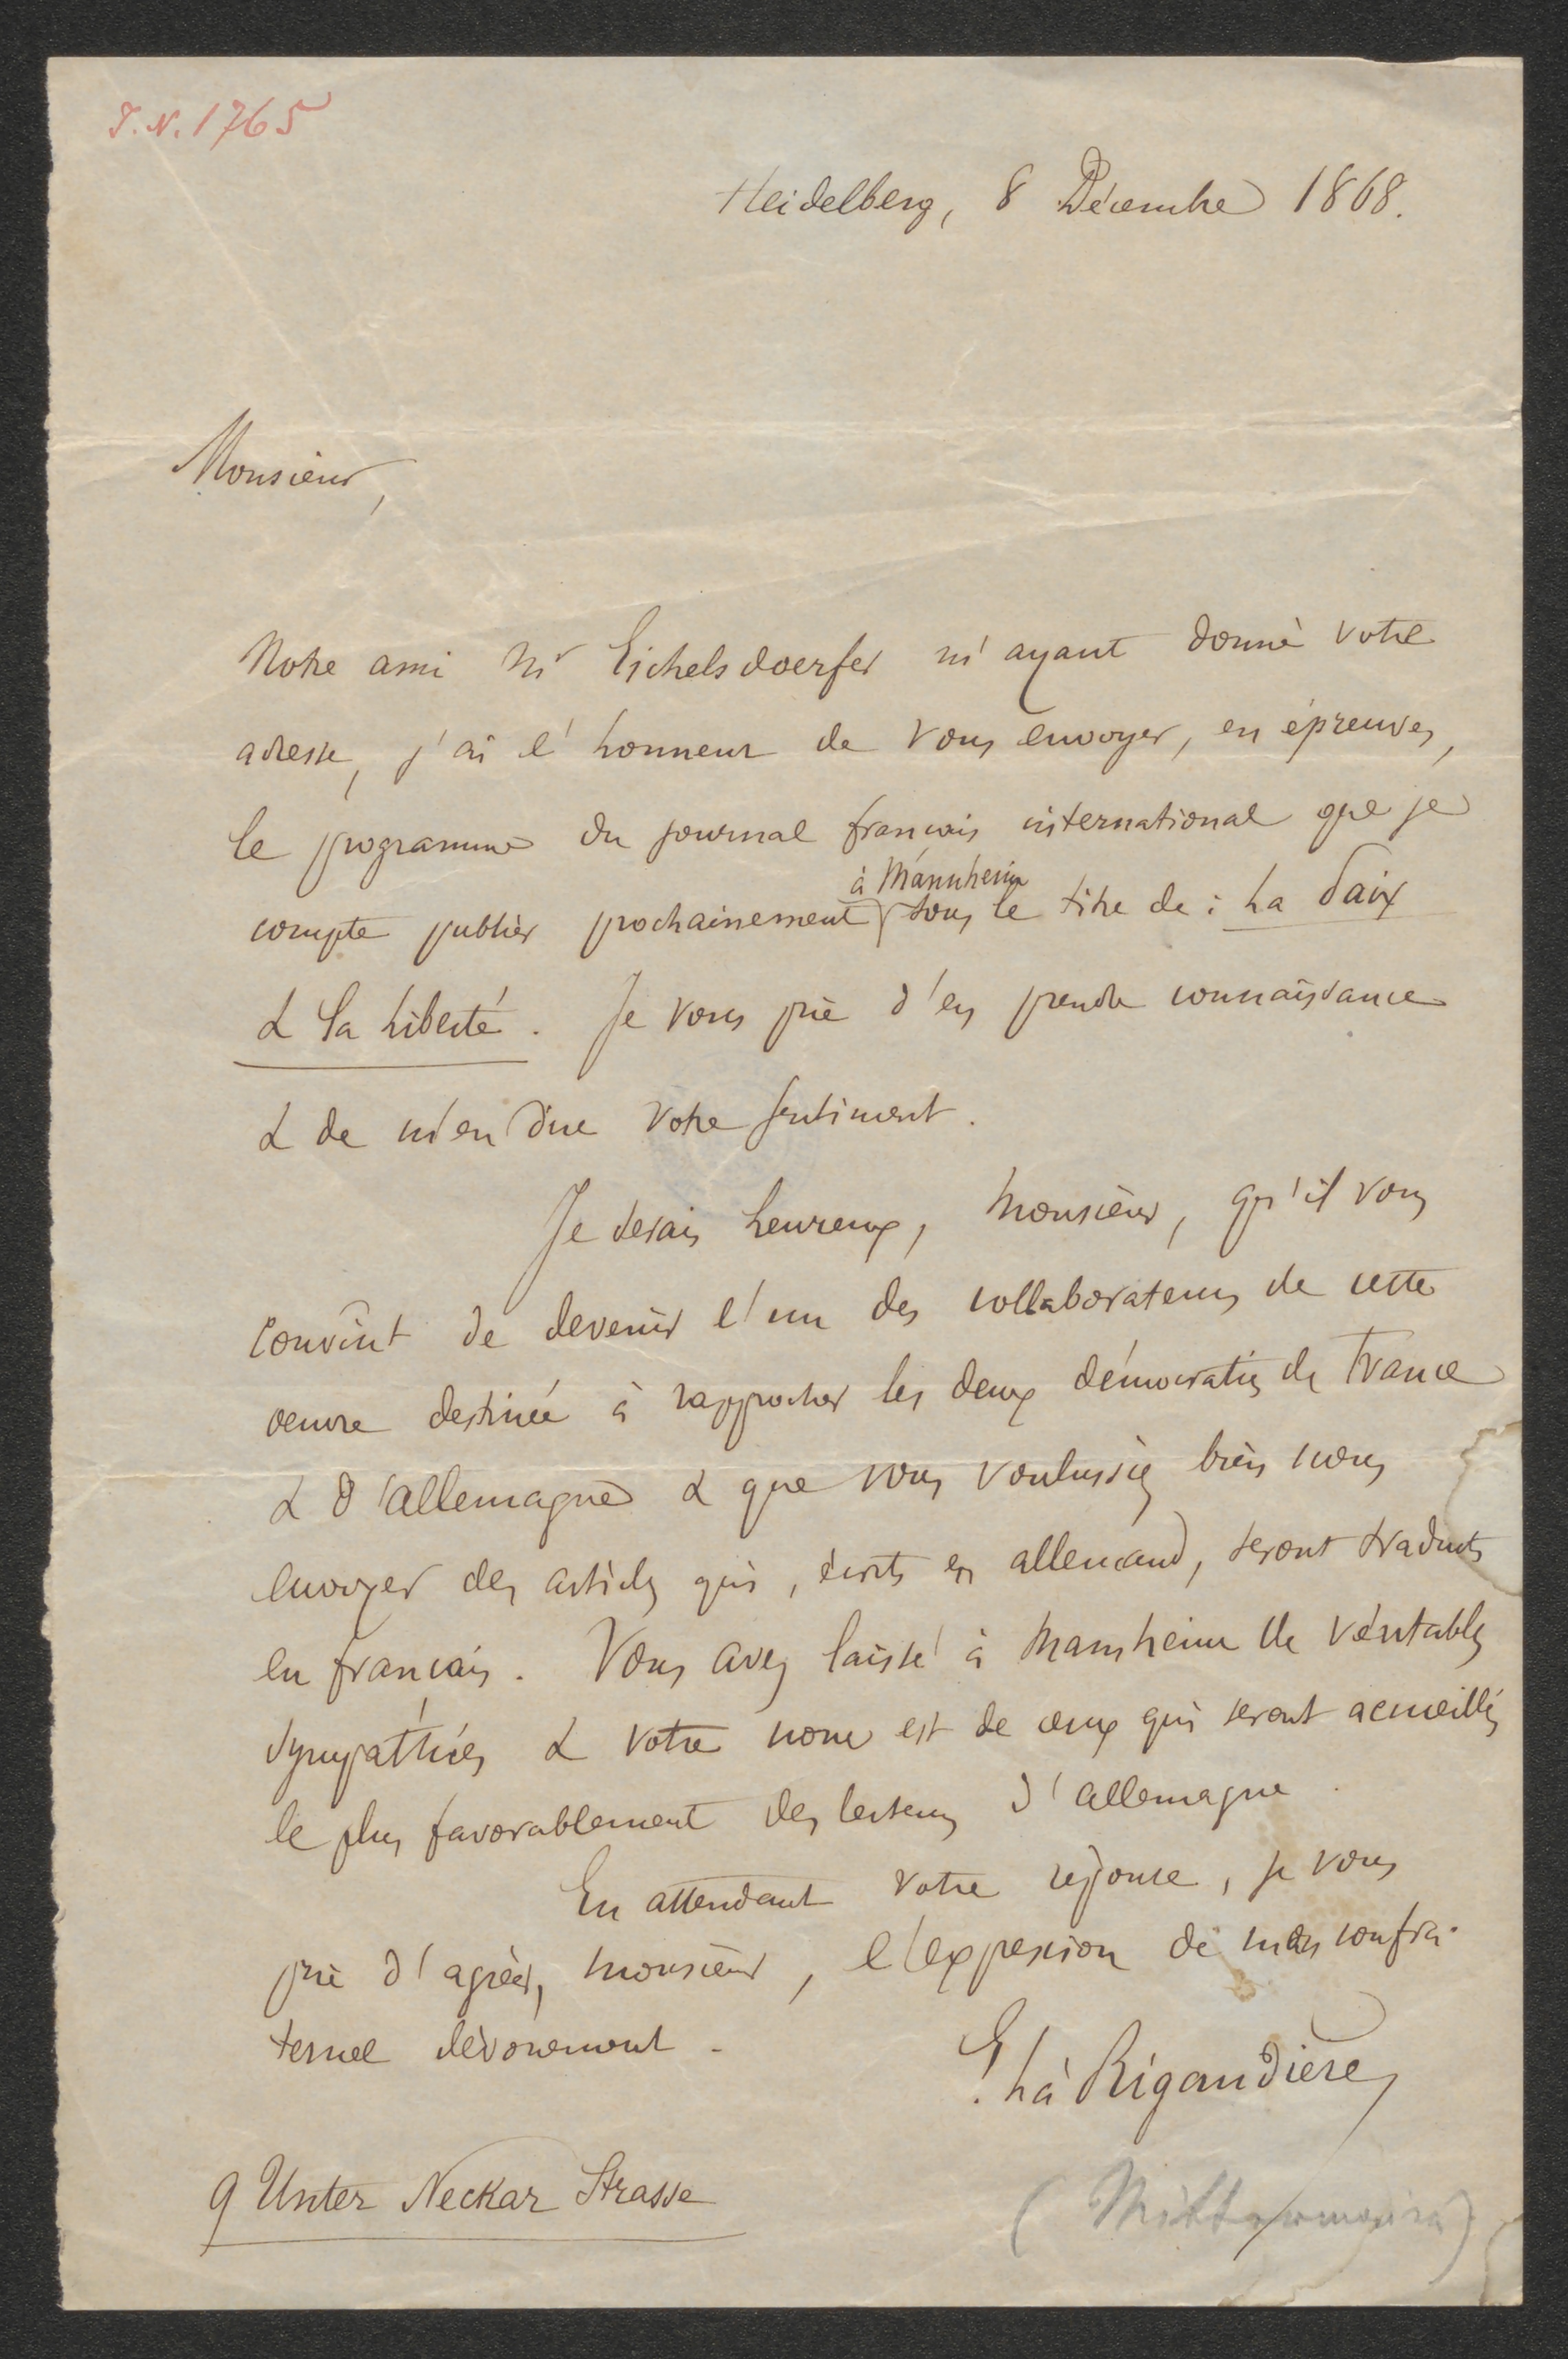 J.N. 1765
Heidelberg, 8 Décembre 1868.
Monsieur,
Notre ami Mr Eichelsdoerfer m'ayant donné votre
adresse, j'ai l'honneur de vous envoyer, en épreuves,
le programme du journal français international que je
à Mannheim
compte publier prochainement sous le titre de : La Paix
& la Liberté. Je vous prie d'en prendre connaissance
& de m'en dire votre sentiment.
Je serais heureux, Monsieur, qu'il vous
convînt de devenir l'un des collaborateurs de cette
oeuvre destinée à rapprocher les deux démocraties de France
& d'allemagne & que vous voulussiez bien nous
envoyer des articles qui, écrits en allemand, seront traduits
en français. Vous avez laissé à Mannheim de véritables
sympathies & votre nom est de ceux qui seront accueillis
le plus favorablement des lecteurs d'allemagne.
En attendant votre réponse, je vous
prie d'agréer, Monsieur, l'expression de mon confra-
ternel dévouement.
E. La Rigaudière
9 Unter Neckar Strasse